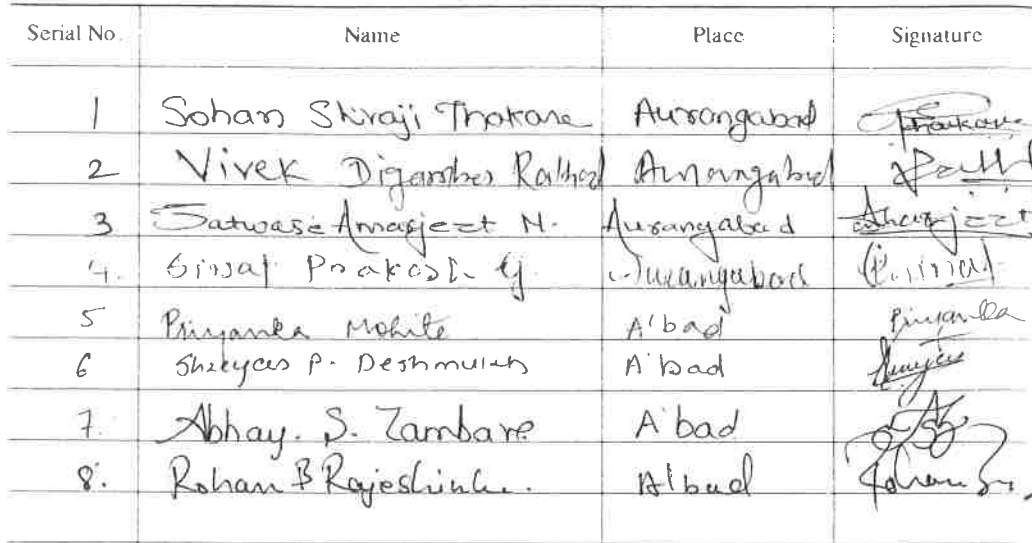 Serial No. Name Place Signature
1 Sohan Shivaji Thokane Aurangabad Thakane
2 Vivek Digamber Rathod Aurangabad
3 Satwase Amarjeet N. Aurangabad Amarjeet
4. Sirsat Prakash G. Aurangabad
5 Priyanka Mohite A'bad Priyanka
6 Shreyas P. Deshmukh A'bad
7. Abhay. S. Zambare A'bad
8. Rohan B A'bad Rohan